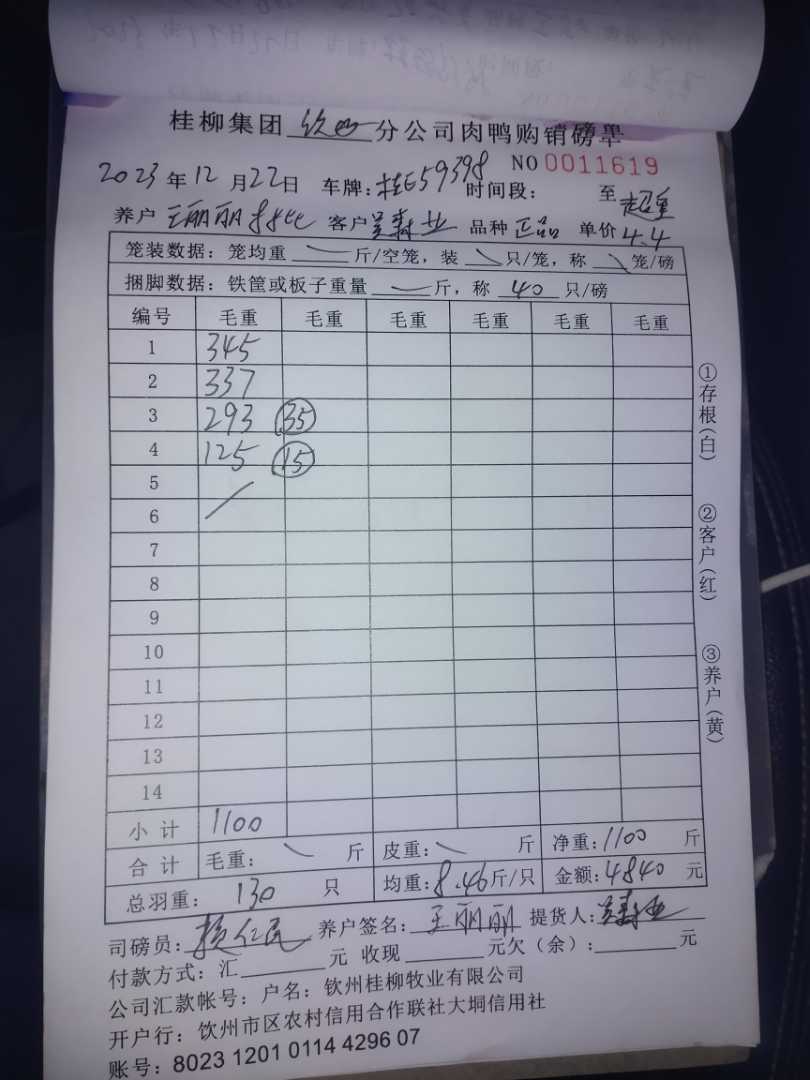 桂柳集团 钦州 分公司肉鸭购销磅单
NO 0011619
2023 年 12 月 22 日 车牌: 桂E59398 时间段: 至 超重
养户 王丽丽 客户 吴森业 品种 正品 单价 4.4
笼装数据: 笼均重 斤/空笼, 装 只/笼, 称 笼/磅
捆脚数据: 铁筐或板子重量 斤, 称 40 只/磅
编号 毛重 毛重 毛重 毛重 毛重 毛重
1 345
2 337
3 293 35
4 125 15
5
6
7
8
9
10
11
12
13
14
小计 1100
合计 毛重: 斤 皮重: 斤 净重: 1100 斤
总羽重: 130 只 均重: 8.46 斤/只 金额: 4840 元
司磅员: 养户签名: 王丽丽 提货人: 吴森业
付款方式: 汇 元 收现 元欠(余): 元
公司汇款帐号: 户名: 钦州桂柳牧业有限公司
开户行: 钦州市区农村信用合作联社大垌信用社
账号: 8023 1201 0114 4296 07
①存根(白)
②客户(红)
③养户(黄)